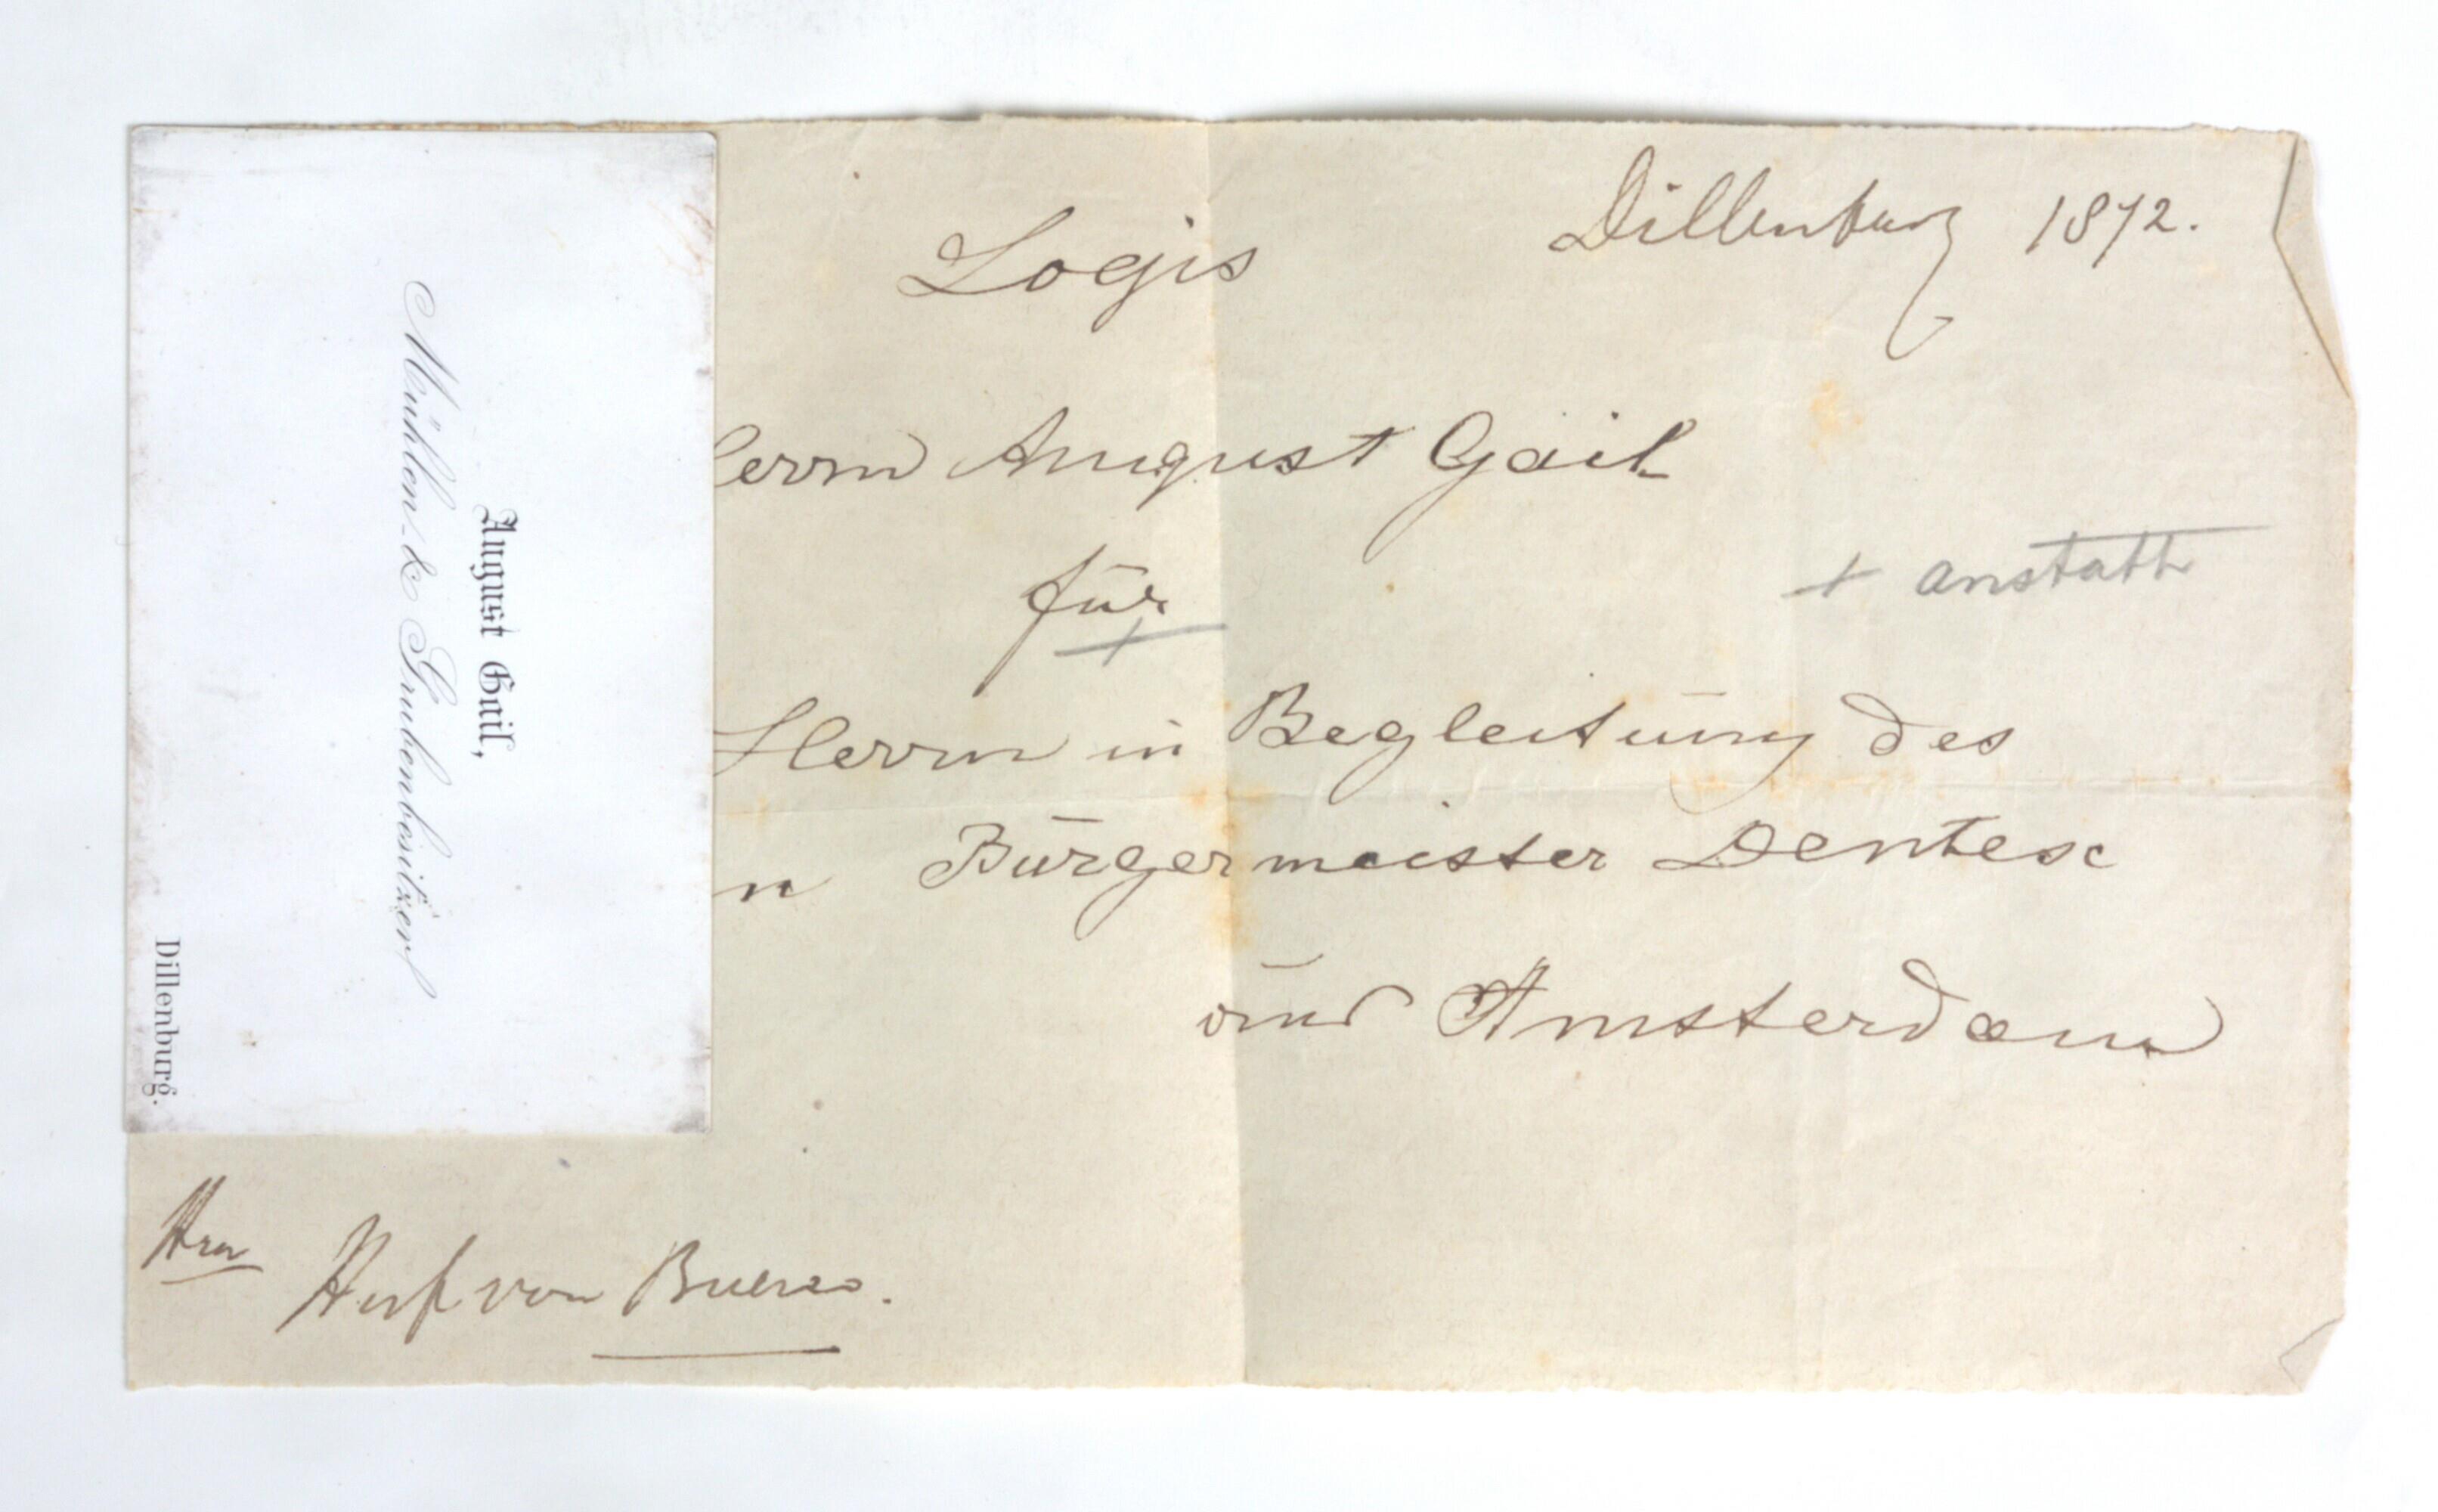 August Gail,
Mühlen- & Grubenbesitzer
Dillenburg.
Dillenburg 1872.
Logis
Herrn August Gail
für
+ anstatt
Herrn in Begleitung des
n Bürgermeister Dentex
und Amsterdam
Hrn
von